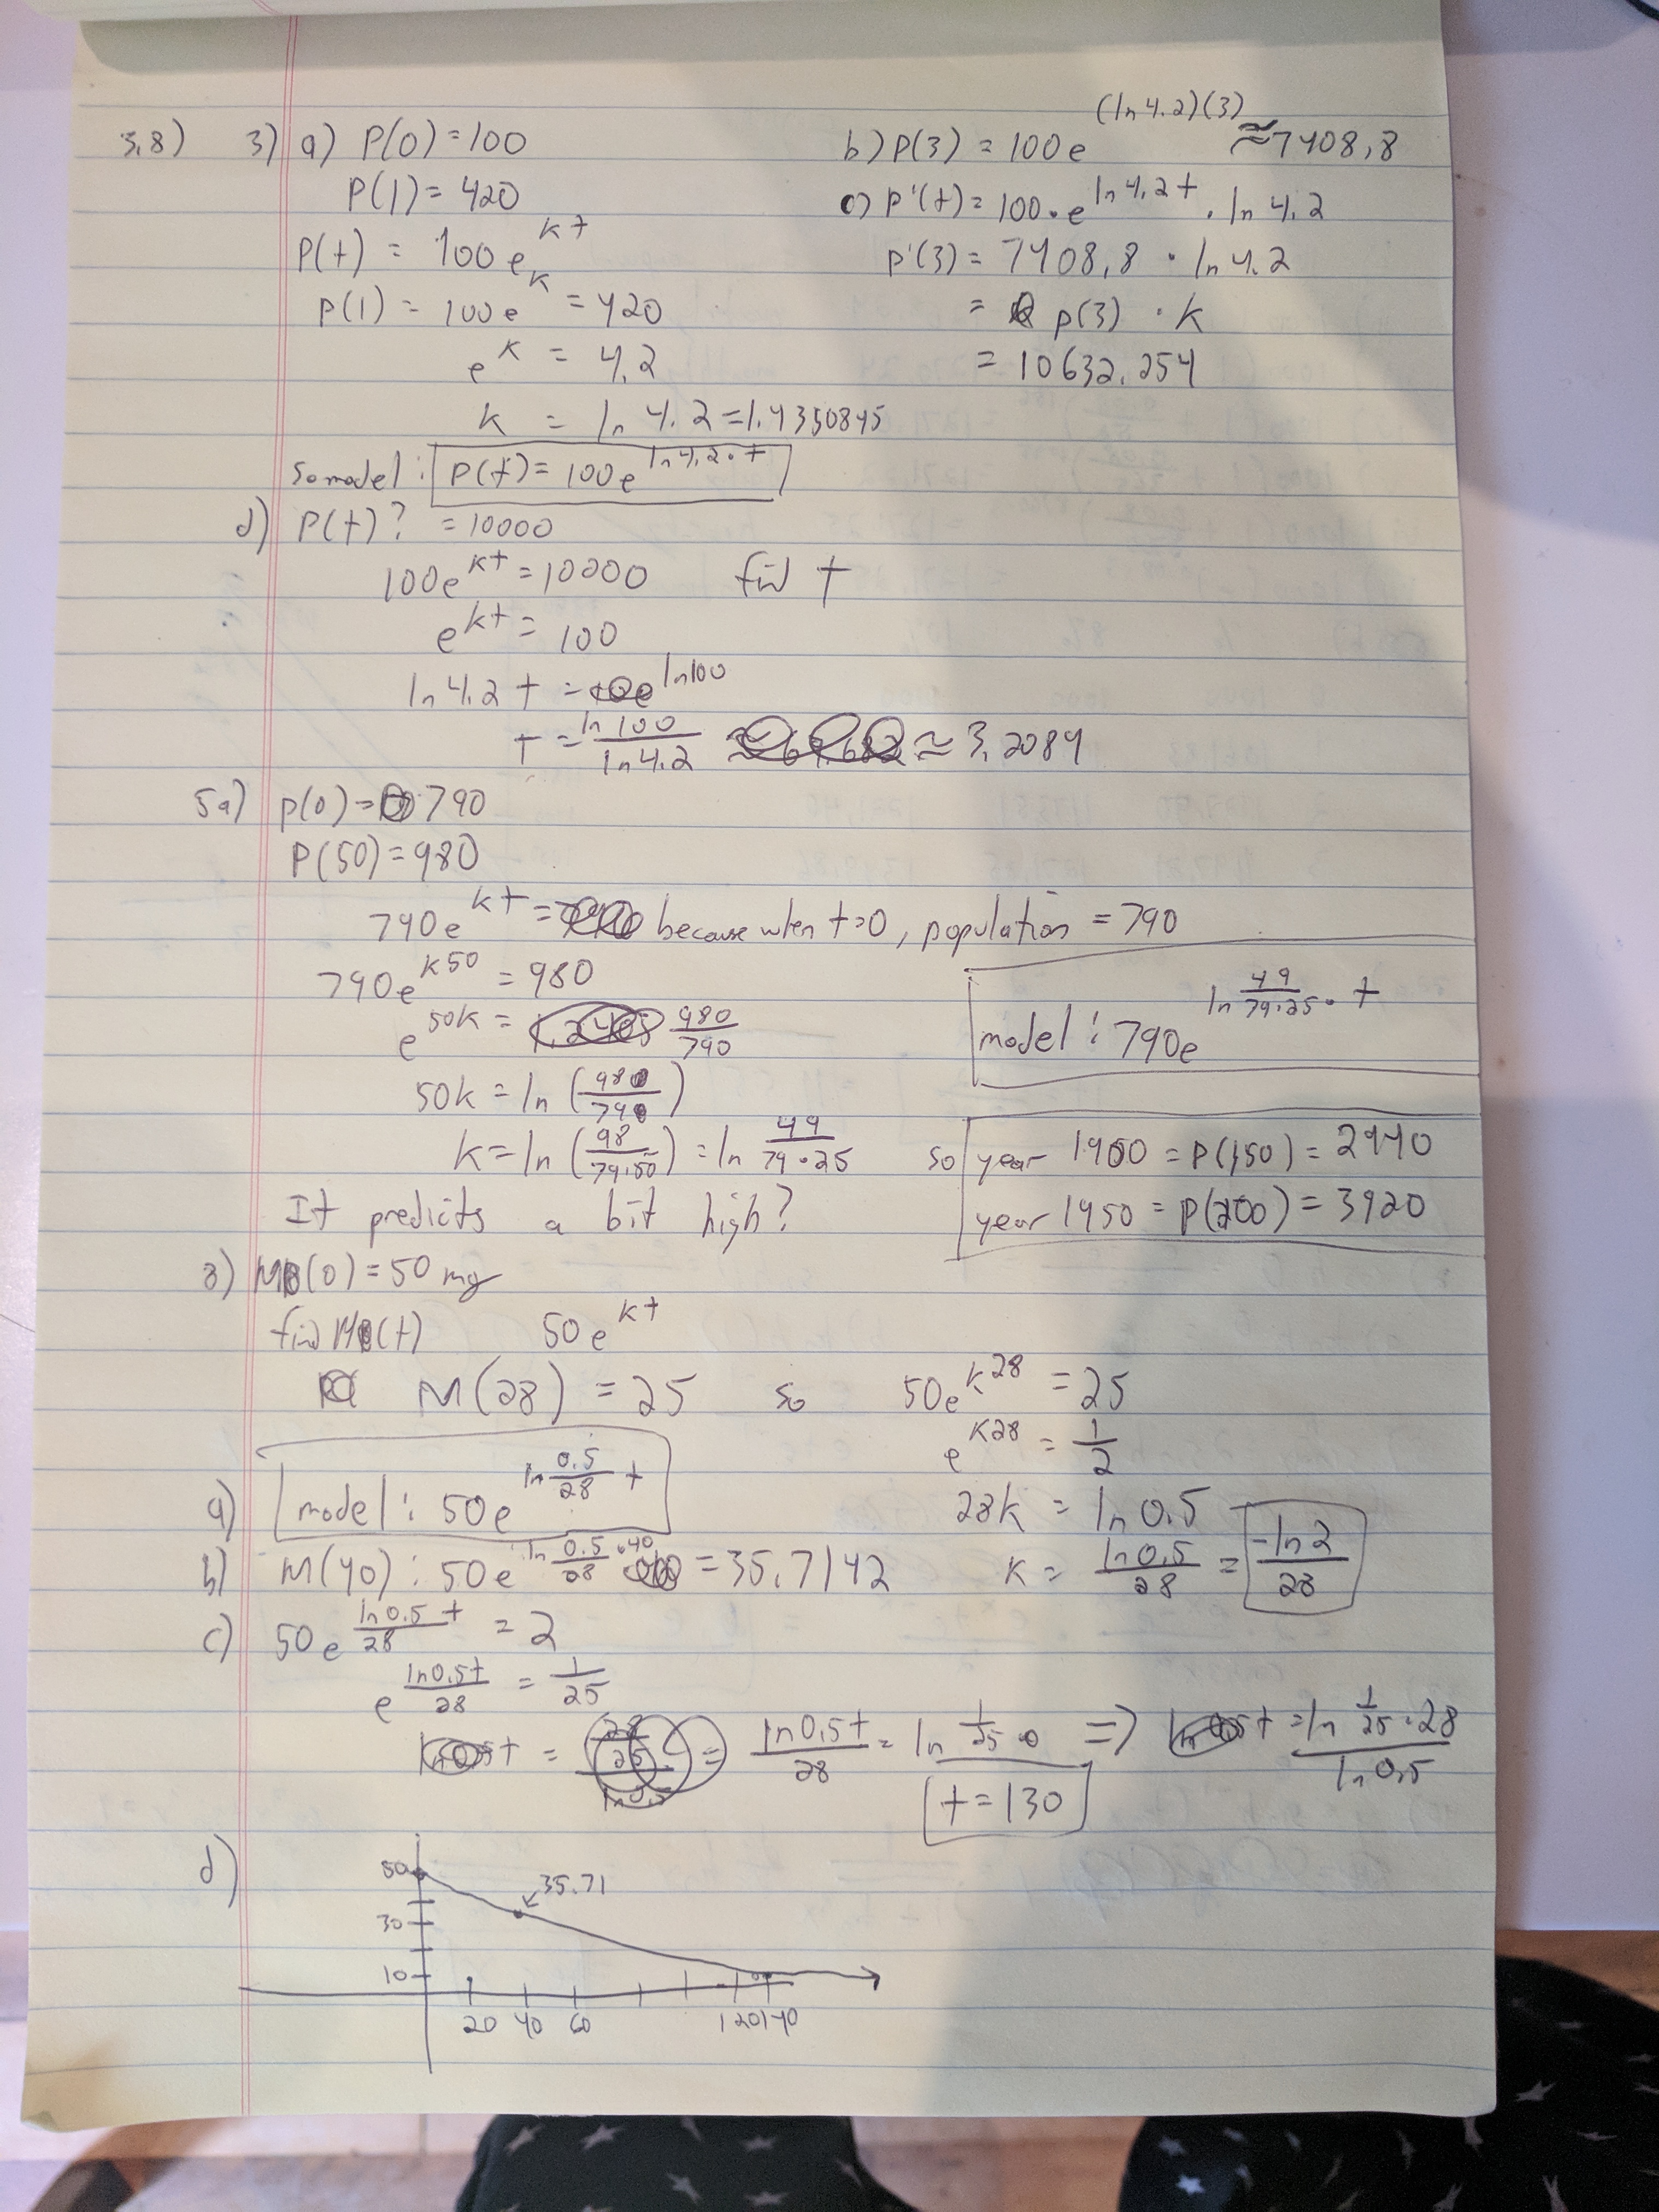 3.8) 3) a) P(0)=100
P(1)=420
P(t) = 100e^kt
P(1) = 100e^k = 420
e^k = 4.2
k = ln 4.2 = 1.4350845
so model: P(t)=100e^ln4.2·t
b) P(3) = 100e^(ln4.2)(3) ≈7408.8
c) P'(t)= 100·e^ln4.2t · ln 4.2
P'(3) = 7408.8 · ln 4.2
= P(3) · k
= 10632.254
d) P(t)? = 10000
100e^kt = 10000 find t
e^kt = 100
ln 4.2 t = ln100
t = ln 100/ln 4.2 ≈ 3.2084
5a) P(0)= 790
P(50)=980
790e^kt = because when t=0, population = 790
790e^k50 = 980
e^50k = 980/790
50k = ln (980/790)
k = ln (98/79·50) = ln 49/79·25
It predicts a bit high?
model: 790e^ln 49/79·25 · t
so year 1900 = P(150) = 2940
year 1950 = P(200) = 3920
8) M(0)=50 mg
find M(t) 50e^kt
M(28) = 25 so 50e^k28 = 25
e^k28 = 1/2
28k = ln 0.5
k = ln0.5/28 = -ln2/28
a) model: 50e^ln 0.5/28 t
b) M(40): 50e^ln 0.5/28 ·40 = 35.7142
c) 50e^ln0.5t/28 = 2
e^ln0.5t/28 = 1/25
t = = ln0.5t/28 = ln 1/25 ⇒ t = ln 1/25·28/ln0.5
t=130
d)
50
35.71
30
10
20 40 60 120 140